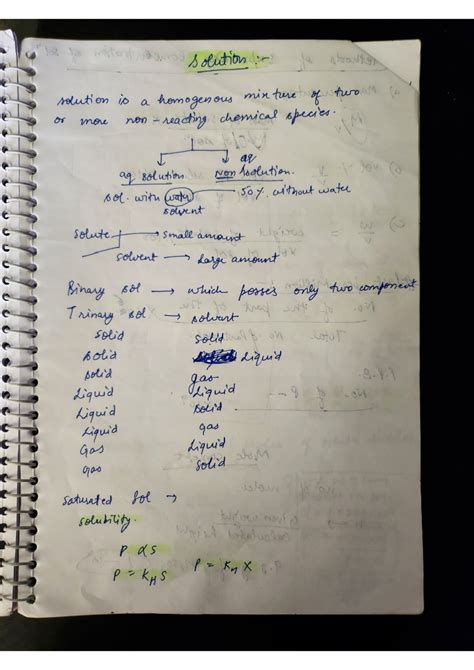 Solution :-
Solution is a homogenous mixture of two
or more non-reacting chemical species.
aq
aq solution. Non Solution.
sol. with water — sol. without water
solvent
Solute → Small amount
Solvent → Large amount
Binary sol → which posses only two component
Trinary sol → solvent
Solid Solid
Solid Liquid
Solid gas
Liquid Liquid
Liquid Solid
Liquid Gas
Gas Liquid
Gas Solid
Saturated Sol →
Solubility.
P α S
P = KH S P = KH X